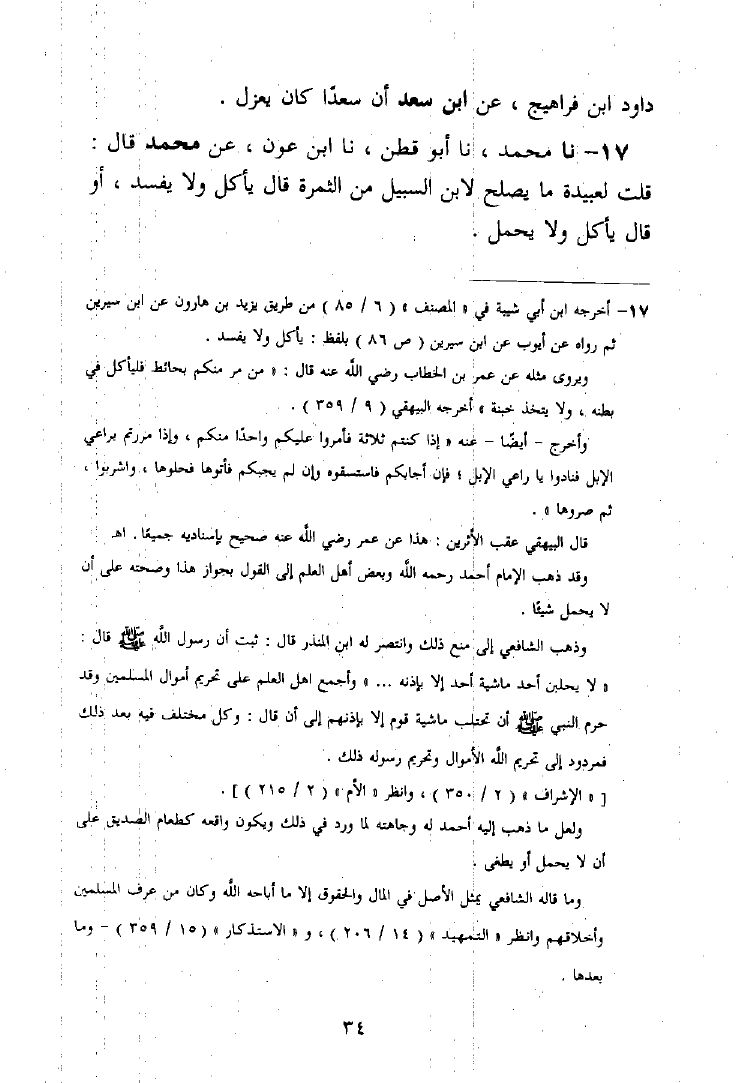 داود ابن فراهيج ، عن ابن سعد أن سعدًا كان يعزل .
١٧- نا محمد ، نا أبو قطن ، نا ابن عون ، عن محمد قال :
قلت لعبيدة ما يصلح لابن السبيل من الثمرة قال يأكل ولا يفسد ، أو
قال يأكل ولا يحمل .
١٧- أخرجه ابن أبي شيبة في « المصنف » ( ٦ / ٨٥ ) من طريق يزيد بن هارون عن ابن سيرين
ثم رواه عن أيوب عن ابن سيرين ( ص ٨٦ ) بلفظ : يأكل ولا يفسد .
ويروى مثله عن عمر بن الخطاب رضي اللَّه عنه قال : « من مر منكم بحائط فليأكل في
بطنه ، ولا يتخذ خبنة » أخرجه البيهقي ( ٩ / ٣٥٩ ) .
وأخرج - أيضًا - عنه « إذا كنتم ثلاثة فأمروا عليكم واحدًا منكم ، وإذا مررتم براعي
الإبل فنادوا يا راعي الإبل ؛ فإن أجابكم فاستسقوه وإن لم يجبكم فأتوها فحلوها ، واشربوا ،
ثم صروها » .
قال البيهقي عقب الأثرين : هذا عن عمر رضي اللَّه عنه صحيح بإسناديه جميعًا . اهـ
وقد ذهب الإمام أحمد رحمه اللَّه وبعض أهل العلم إلى القول بجواز هذا وصحته على أن
لا يحمل شيئًا .
وذهب الشافعي إلى منع ذلك وانتصر له ابن المنذر قال : ثبت أن رسول اللَّه ﷺ قال :
« لا يحلبن أحد ماشية أحد إلا بإذنه ... » وأجمع اهل العلم على تحريم أموال المسلمين وقد
حرم النبي ﷺ أن تحتلب ماشية قوم إلا بإذنهم إلى أن قال : وكل مختلف فيه بعد ذلك
فمردود إلى تحريم اللَّه الأموال وتحريم رسوله ذلك .
[ « الإشراف » ( ٢ / ٣٥٠ ) ، وانظر « الأم » ( ٢ / ٢١٥ ) ] .
ولعل ما ذهب إليه أحمد له وجاهته لما ورد في ذلك ويكون واقعه كطعام الصديق على
أن لا يحمل أو يطغى .
وما قاله الشافعي يمثل الأصل في المال والحقوق إلا ما أباحه اللَّه وكان من عرف المسلمين
وأخلاقهم وانظر « التمهيد » ( ١٤ / ٢٠٦ ) ، و « الاستذكار » ( ١٥ / ٣٥٩ ) - وما
بعدها .
٣٤